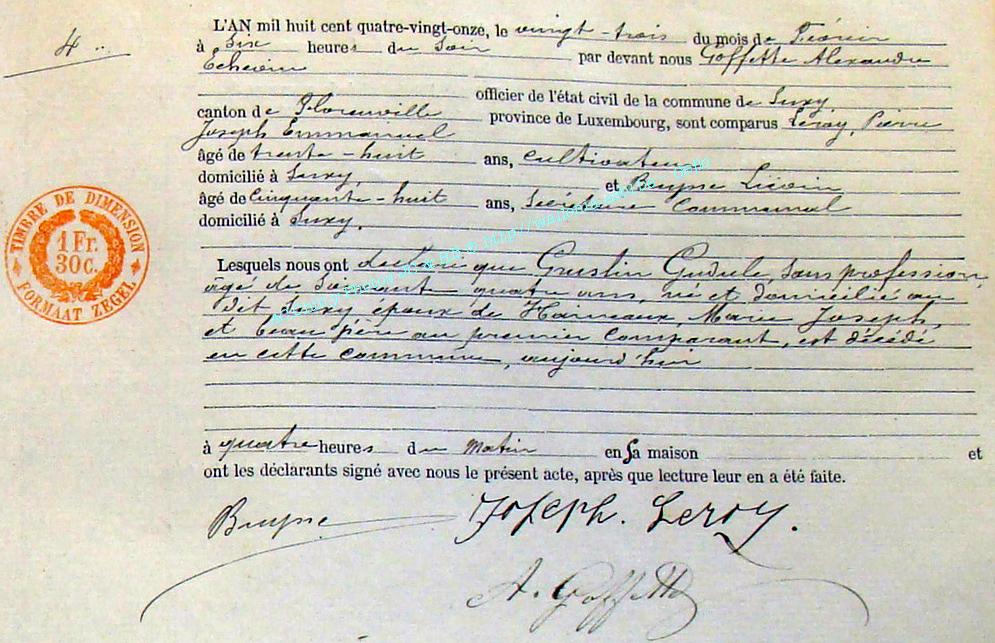 4
L'AN mil huit cent quatre-vingt-onze, le vingt-trois du mois de Février
à Six heures du Soir par devant nous Goffette Alexandre
Echevin
officier de l'état civil de la commune de Suxy
canton de Florenville province de Luxembourg, sont comparus Leroy, Pierre
Joseph Emmanuel
âgé de trente-huit ans, Cultivateur
domicilié à Suxy, et Buysse Liévin
âgé de Cinquante-huit ans, Secrétaire Communal
domicilié à Suxy.
Lesquels nous ont déclaré que Guslin Gudule, Sans profession,
âgé de Soixante quatre ans, né et domicilié au
dit Suxy, époux de Hameaux, Marie Joseph,
et beau père au premier Comparant, est décédé
en cette commune, aujourd'hui
à quatre heures du matin en Sa maison et
ont les déclarants signé avec nous le présent acte, après que lecture leur en a été faite.
Buysse Joseph. Leroy.
A. Goffette
TIMBRE DE DIMENSION
1 Fr.
30 C.
FORMAAT ZEGEL